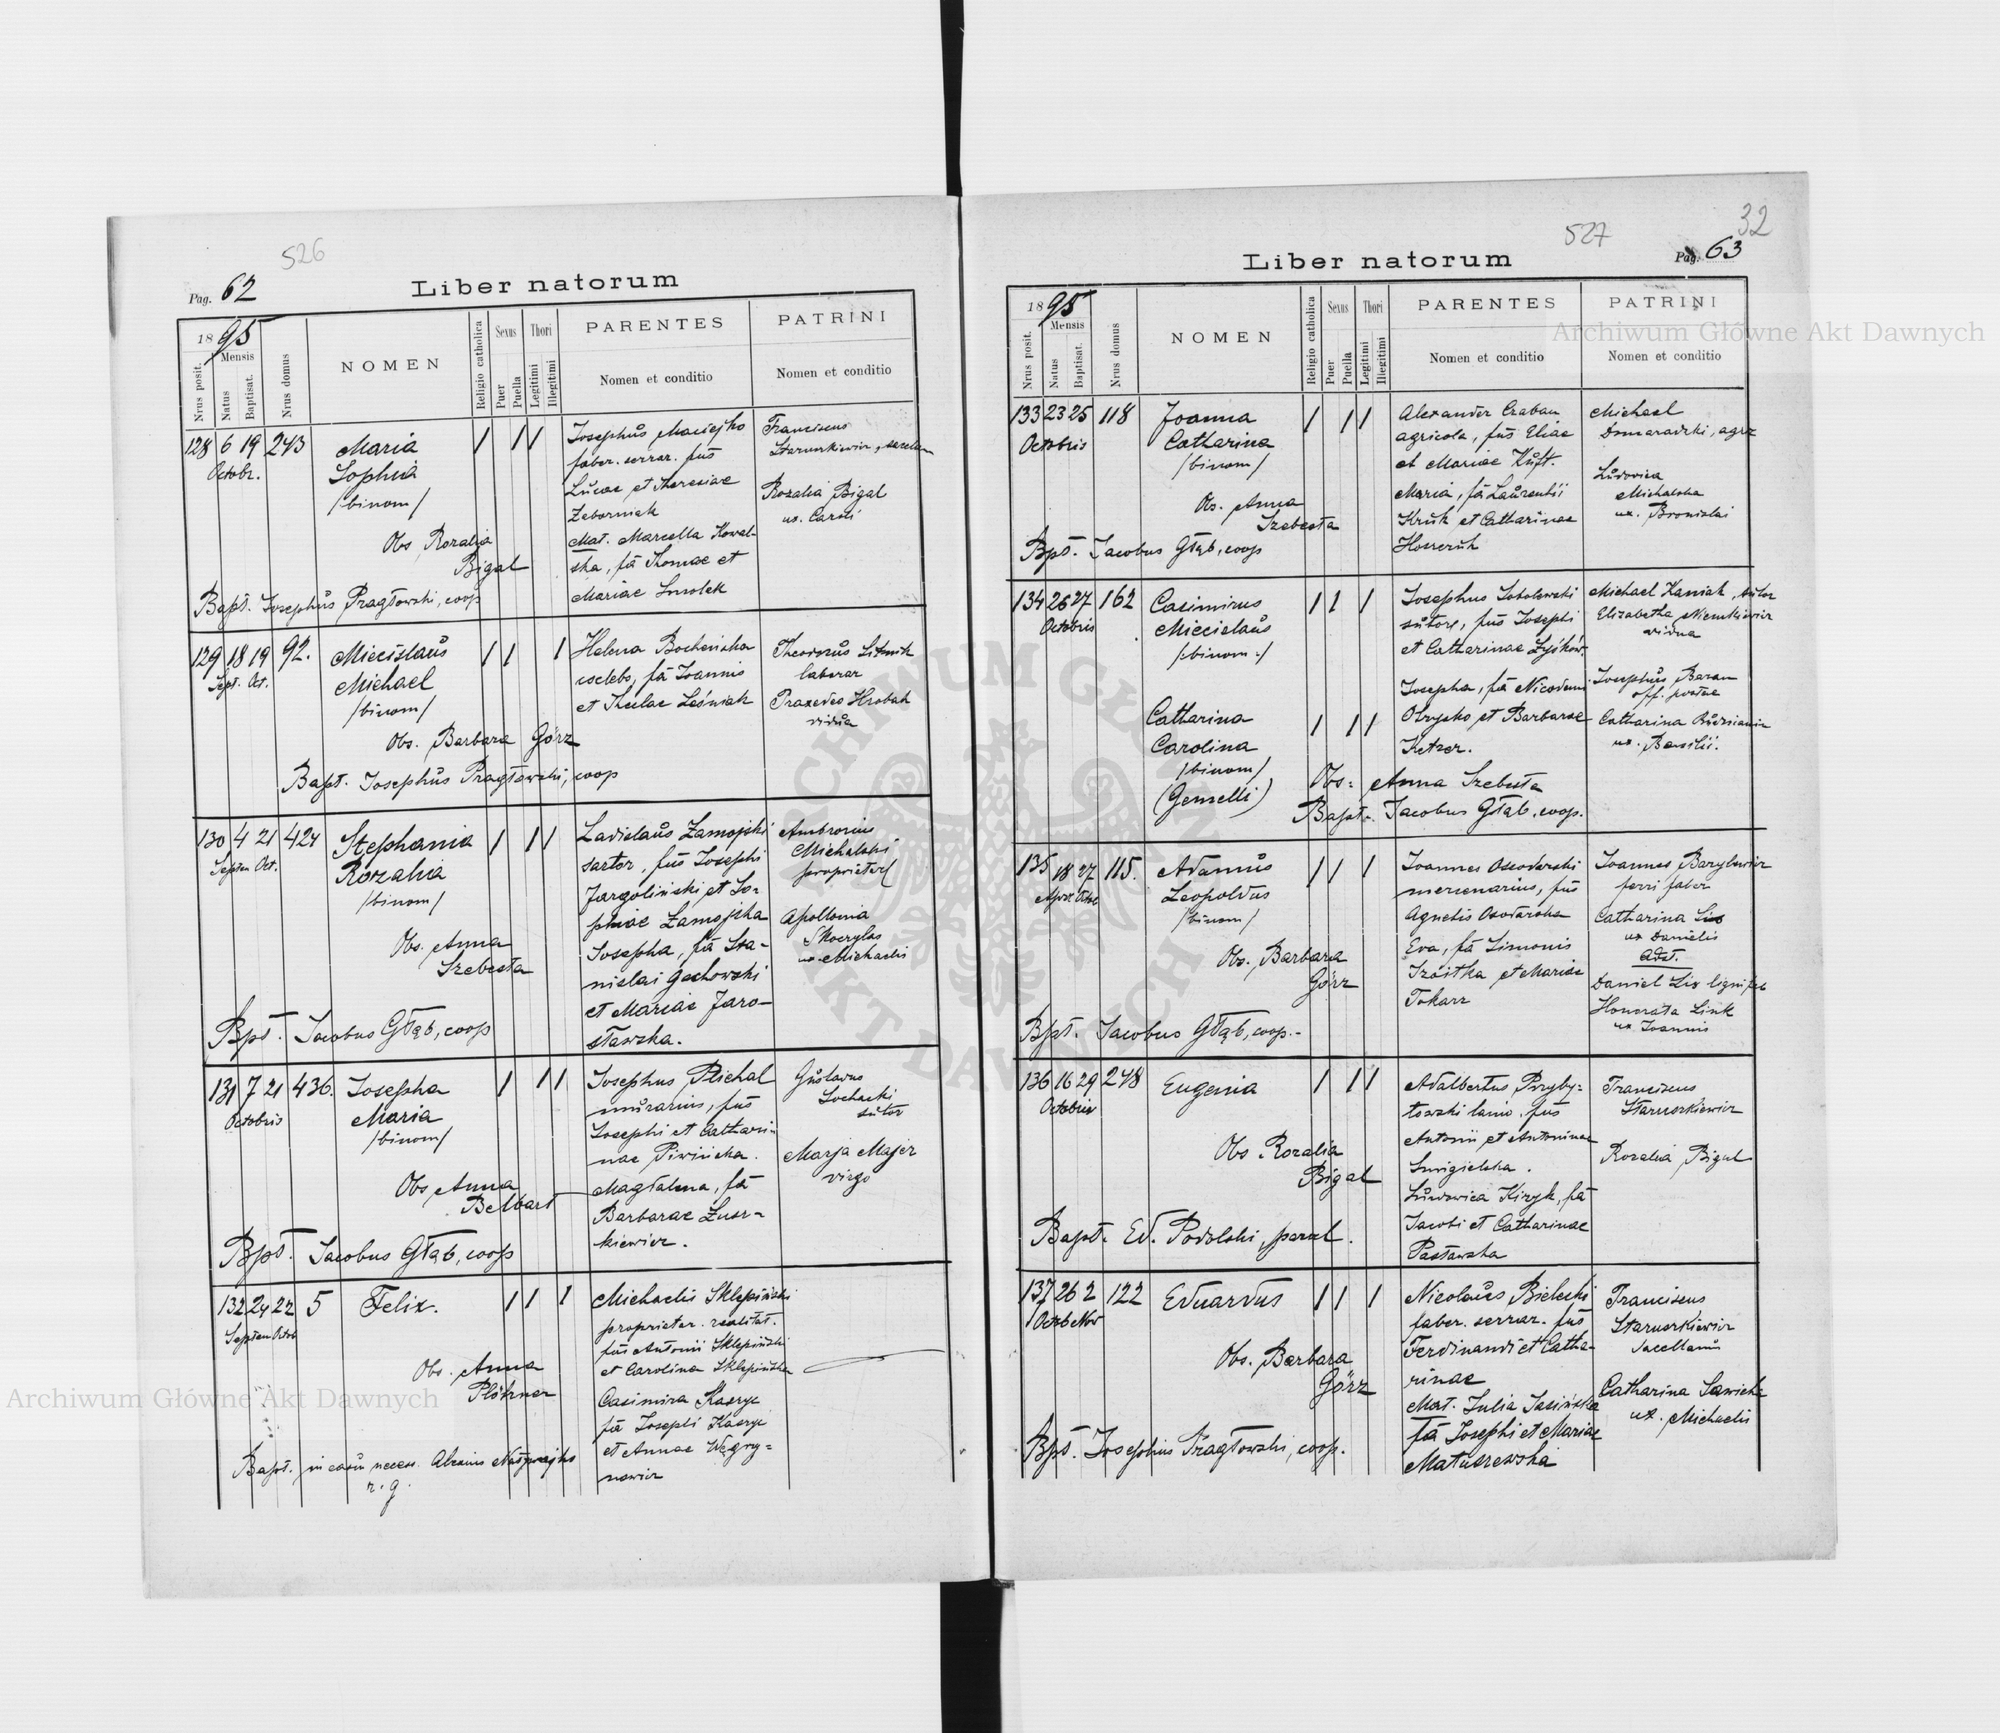 526
Pag. 62
Liber natorum
1895
Mensis
Nrus posit.
Natus
Baptisat.
Nrus domus
NOMEN
Religio catholica
Sexus
Puer
Puella
Thori
Legitimi
Illegitimi
PARENTES
Nomen et conditio
PATRINI
Nomen et conditio
128 6 19 243
Octobr.
Maria
Sophia
/binom/
Obs Rozalia
Bigal
Bapt. Josephus Pragłowski, coop
Josephus Maciejko
faber. serrar. fus
Lucae et Theresiae
Zaborniak
Mat. Marcella Kowal-
ska, fa Thomae et
Mariae Smolek
Franciscus
Starwrkiewicz,
Rozalia Bigal
ux. Caroli
129 18 19 92.
Sept. Oct.
Miecislaus
Michael
/binom/
Obs. Barbara Görz
Bapt. Josephus Pragłowski, coop
Helena Bocheńska
coelebs, fa Joannis
et Theclae Leśniak
Theodorus Litwak
laborar
Praxedes Hrobak
vidua
130 4 21 424
Septem Oct.
Stephania
Rozalia
/binom/
Obs. Anna
Szebesta
Bpt. Jacobus Głąb, coop
Ladislaus Zamojski
sartor, fus Josephi
Jargoliński et So-
phiae Zamojska
Josepha, fa Sta-
nislai Gechowski
et Mariae Jaro-
sławska.
Ambrosius
Michalski
proprietar
Apollonia
Skoczylas
ux. Michaelis
131 7 21 436.
Octobris
Josepha
Maria
/binom/
Obs Anna
Belbart
Bpt. Jacobus Głąb, coop
Josephus Plichal
murarius, fus
Josephi et Cathari-
nae Piwińska.
Magdalena, fa
Barbarae Zusr-
kiewicz.
Gustavus
Sochacki
sutor
Marja Majer
virgo
132 24 22 5
Septem Octob
Felix.
Obs. Anna
Plöhner
Bapt. in casu necess.
r. g.
Michaelis Sklepiński
proprietar. realitat.
fus Antonii Sklepiński
et Carolina Sklepińska
Casimira Kasryc
fa Josephi Kasryc
et Annae Węgry=
nowicz
527
32
Liber natorum
Pag. 63
1895
Mensis
Nrus posit.
Natus
Baptisat.
Nrus domus
NOMEN
Religio catholica
Sexus
Puer
Puella
Thori
Legitimi
Illegitimi
PARENTES
Nomen et conditio
PATRINI
Nomen et conditio
133 23 25 118
Octobris
Joanna
Catharina
/binom/
Obs. Anna
Szebesta
Bpt. Jacobus Głąb, coop
Alexander Czaban
agricola, fus Eliae
et Mariae Kuft.
Maria, fa Laurentii
Kruk et Catharinae
Michael
Domaradzki, agr
Ludovica
Michalska
ux. Bronislai
134 26 27 162
Octobris
Casimirus
Miecislaus
/:binom:/
Catharina
Carolina
/binom/
(Gemelli)
Obs: Anna Szebesta
Bapt. Jacobus Głąb, coop.
Josephus Sokolowski
sutor, fus Josephi
et Catharinae
Josepha, fa Nicodemi
Obrypko et Barbarae
Ketzer.
Michael Kaniak, sutor
Elisabetha Niemkiewicz
vidua
Josephus Baran
off. postae
Catharina
ux. Basilii.
135 18 27 115.
Octob
Adamus
Leopoldus
/binom/
Obs. Barbara
Görz
Bpt. Jacobus Głąb, coop.
Joannes Osodarski
mercenarius, fus
Agnetis Osodarska
Eva, fa Simonis
Szóstka et Mariae
Tokarz
Joannes Barylewicz
ferri faber
Catharina Lis
ux Danielis
Daniel Lis
Honorata Link
ux Joannis
136 16 29 248
Octobris
Eugenia
Obs Rozalia
Bigal
Bapt. Ed. Podolski,
Adalbertus Przyby=
łowski lanio, fus
Antonii et Antoninae
Smigielska.
Ludovica Kizyk, fa
Jacobi et Catharinae
Pasławska
Franciscus
Rozalia Bigal
137 26 2 122
Octob Nov
Eduardus
Obs. Barbara
Görz
Bpt. Josephus Pragłowski, coop.
Nicolaus Bielecki
faber. serrar. fus
Ferdinandi et Catha-
rinae
Mat. Julia Jasińska
fa Josephi et Mariae
Matuszewska
Franciscus
Sacellanus
Catharina Sawicka
ux. Michaelis
Archiwum Główne Akt Dawnych
Archiwum Główne Akt Dawnych
ARCHIWUM GŁÓWNE
AKT DAWNYCH